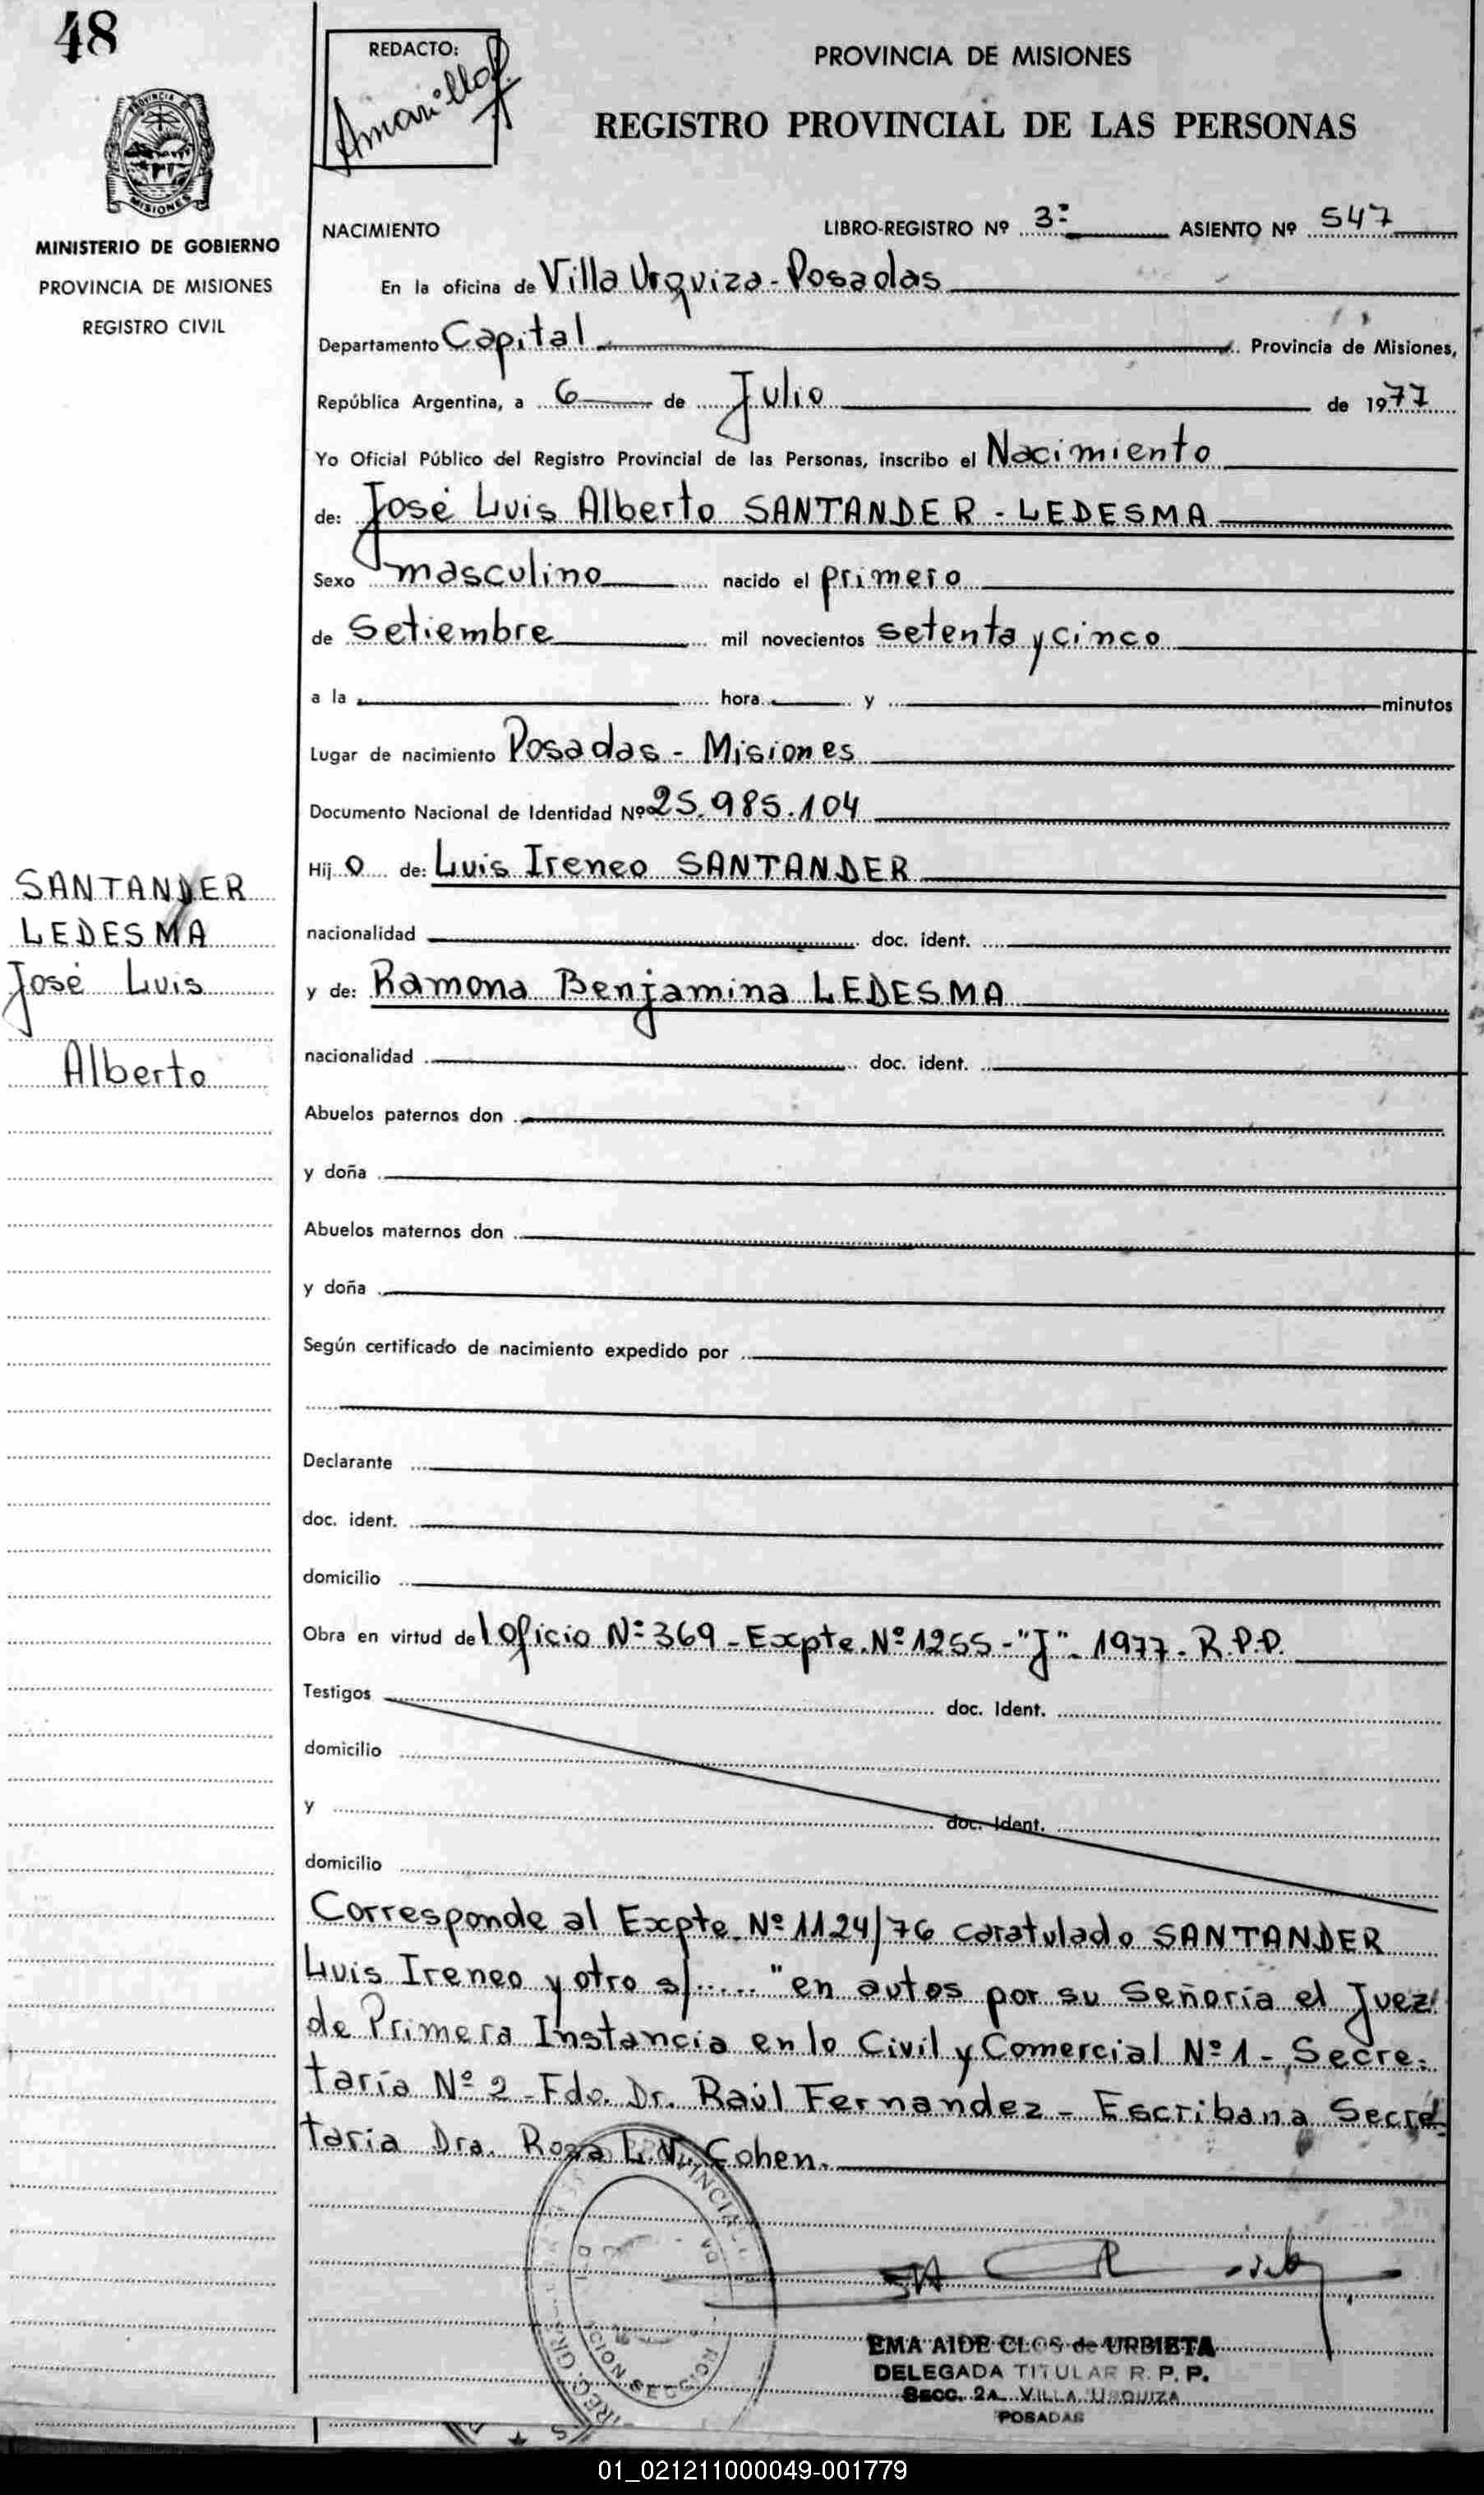 48
REDACTO:
Amarilla
PROVINCIA DE MISIONES
REGISTRO PROVINCIAL DE LAS PERSONAS
PROVINCIA DE
MISIONES
MINISTERIO DE GOBIERNO
PROVINCIA DE MISIONES
REGISTRO CIVIL
NACIMIENTO
LIBRO-REGISTRO Nº 3º ASIENTO Nº 547
En la oficina de Villa Urquiza - Posadas
Departamento Capital Provincia de Misiones,
República Argentina, a 6 de Julio de 1977
Yo Oficial Público del Registro Provincial de las Personas, inscribo el Nacimiento
de: José Luis Alberto SANTANDER - LEDESMA
Sexo masculino nacido el primero
de Setiembre mil novecientos setenta y cinco
a la hora y minutos
Lugar de nacimiento Posadas - Misiones
Documento Nacional de Identidad Nº 25.985.104
Hijo de: Luis Ireneo SANTANDER
nacionalidad doc. ident.
y de: Ramona Benjamina LEDESMA
nacionalidad doc. ident.
SANTANDER
LEDESMA
José Luis
Alberto
Abuelos paternos don
y doña
Abuelos maternos don
y doña
Según certificado de nacimiento expedido por
Declarante
doc. ident.
domicilio
Obra en virtud del Oficio Nº 369 - Excpte. Nº 1255 - "J" - 1977 - R.P.P.
Testigos doc. Ident.
domicilio
y doc. Ident.
domicilio
Corresponde al Excpte. Nº 1124/76 caratulado SANTANDER
Luis Ireneo y otro s/..... "en autos por su Señoría el Juez
de Primera Instancia en lo Civil y Comercial Nº 1 - Secre-
taría Nº 2 - Fdo. Dr. Raúl Fernandez - Escribana Secre
taria Dra. Rosa L. N. Cohen.
EMA AIDE CLOS de URBIETA
DELEGADA TITULAR R. P. P.
Secc. 2a. VILLA URQUIZA
POSADAS
01_021211000049-001779